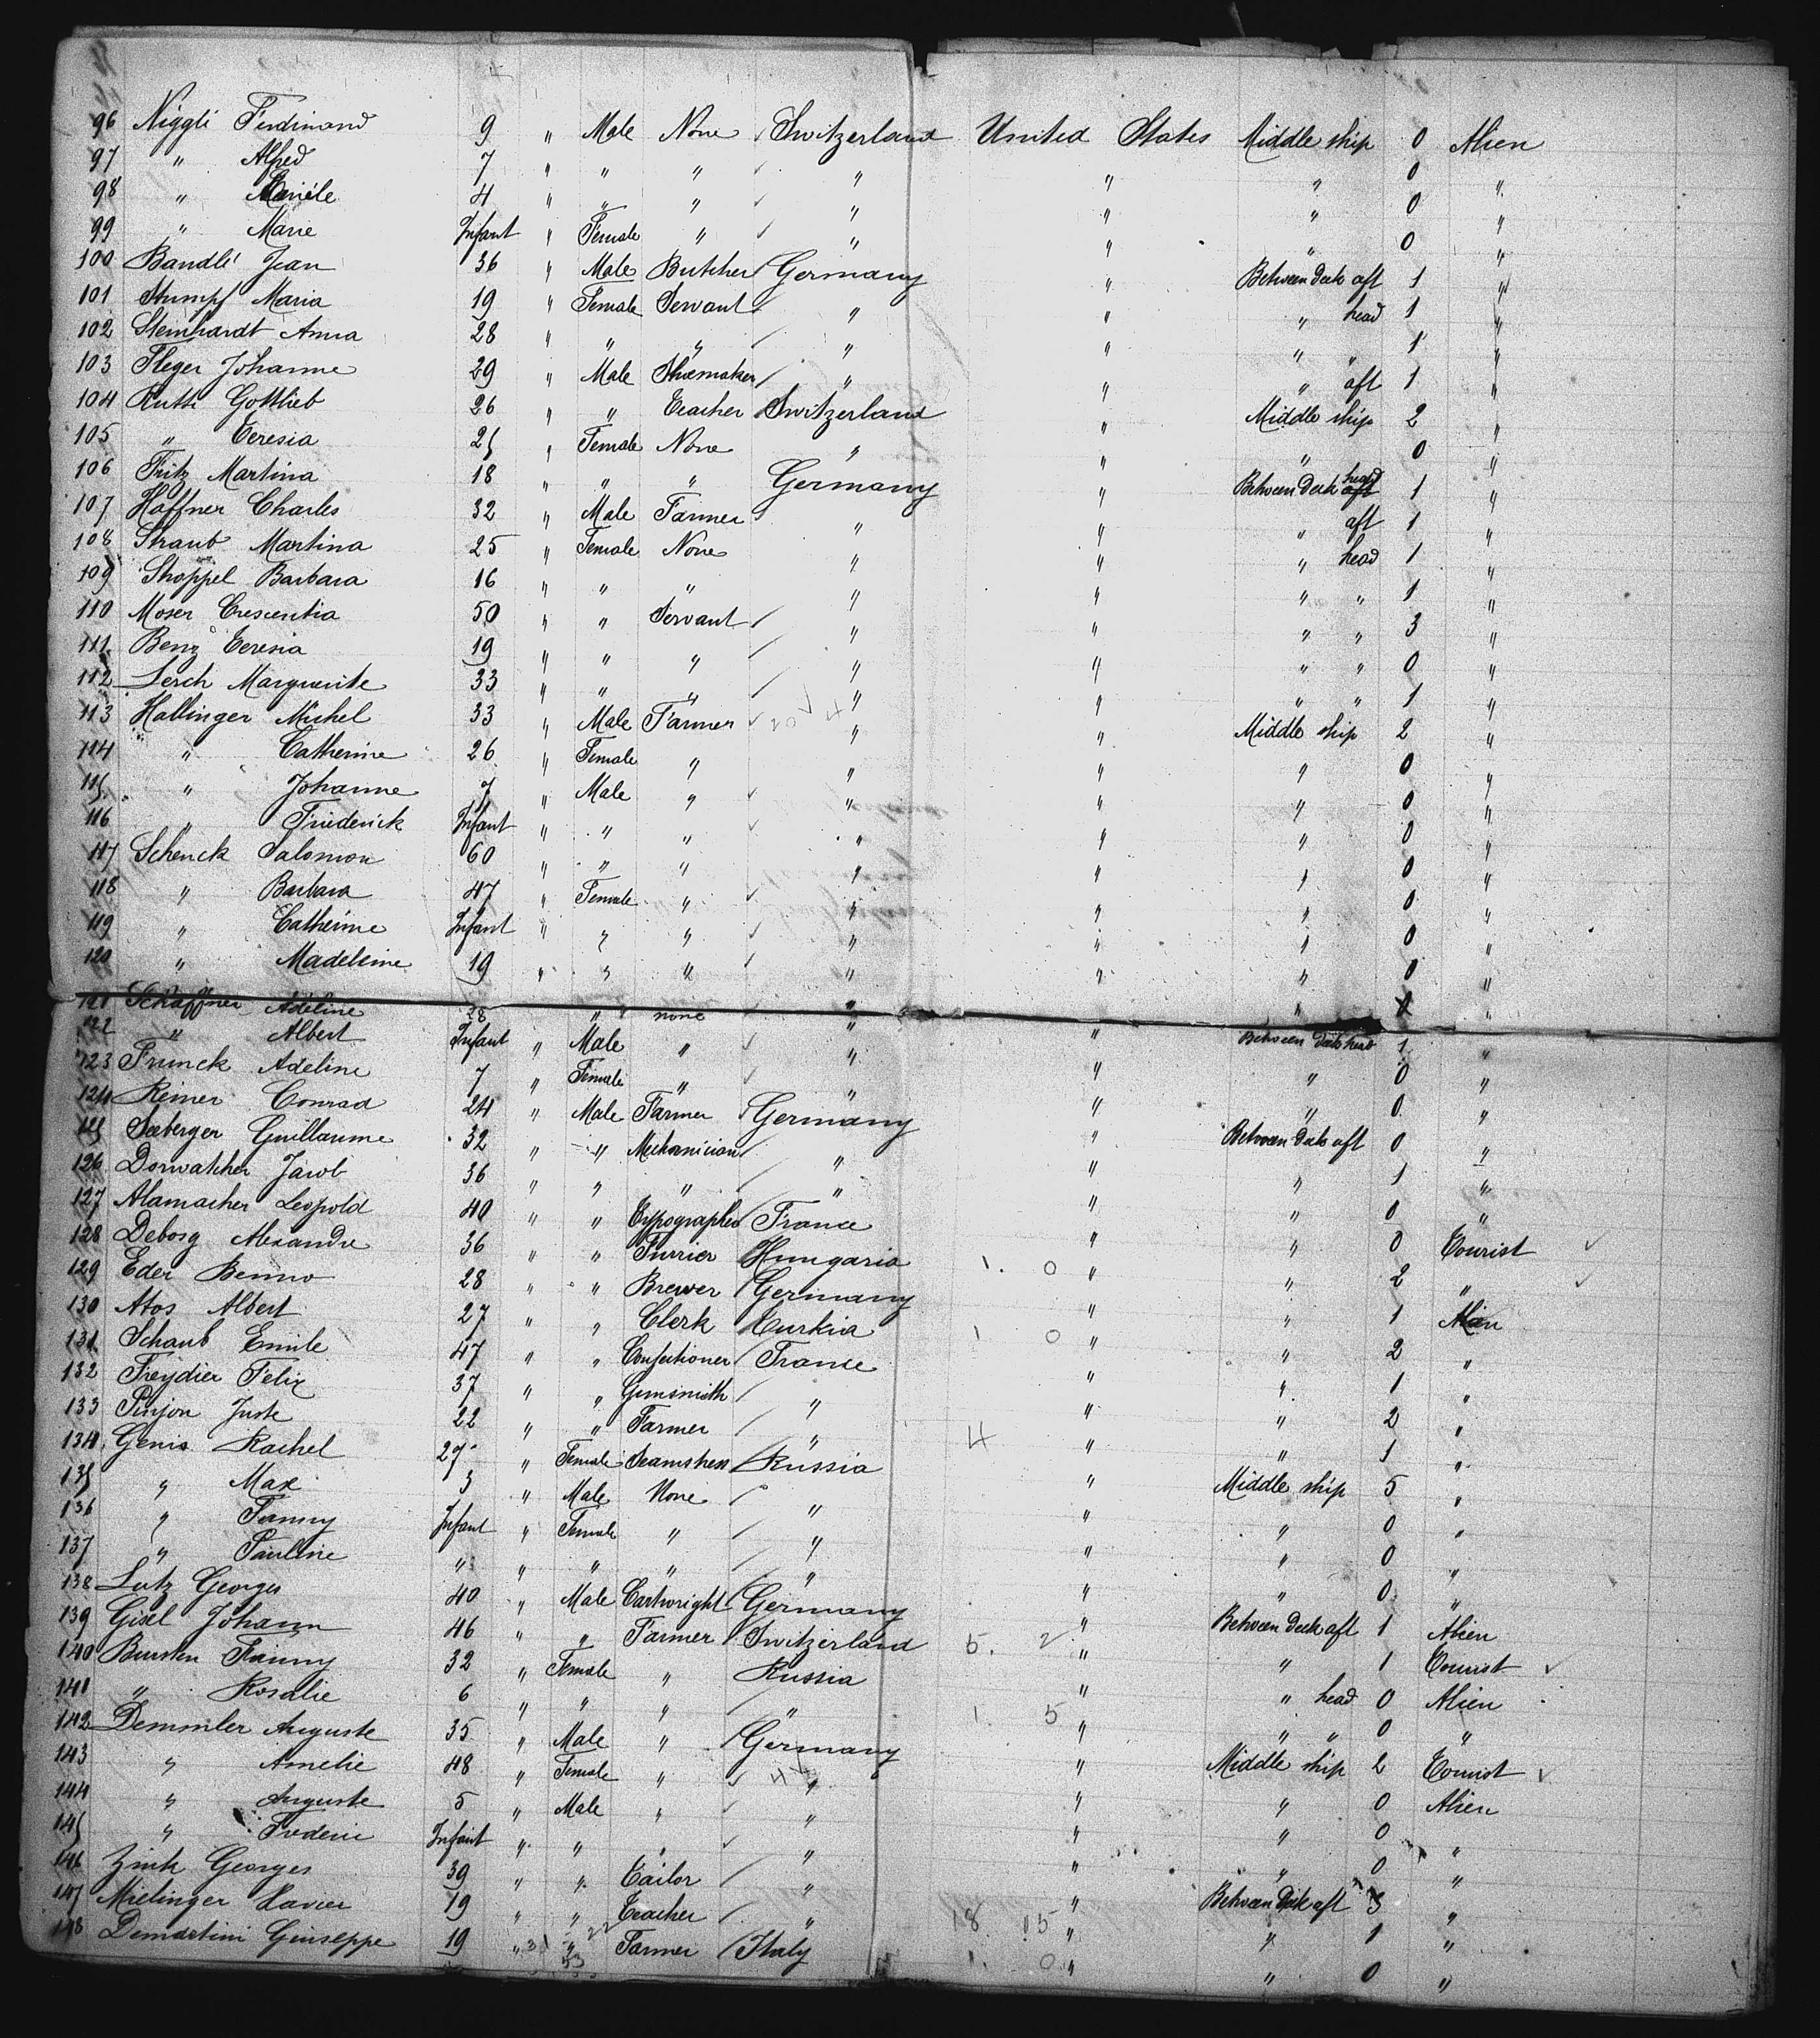 96 Niggli Ferdinand 9 " Male None Switzerland United States Middle ship 0 Alien
97 " Alfred 7 " " " " " " 0 "
98 " 4 " " " " " " 0 "
99 " Marie Infant " Female " " " " 0 "
100 Bandlé Jean 36 " Male Butcher Germany " Between Deck aft 1 "
101 Stumpf Maria 19 " Female Servant " " " head 1 "
102 Steinhardt Anna 28 " " " " " " " 1 "
103 Fleger Johanne 29 " Male Shoemaker " " " aft 1 "
104 Rutti Gottlieb 26 " " Teacher Switzerland " Middle ship 2 "
105 " Teresia 25 " Female None " " " 0 "
106 Fritz Martina 18 " " " Germany " Between Deck head aft 1 "
107 Haffner Charles 32 " Male Farmer " " " aft 1 "
108 Straub Martina 25 " Female None " " " head 1 "
109 Shoppel Barbara 16 " " " " " " " 1 "
110 Moser Crescentia 50 " " Servant " " " " 3 "
111 Benz Teresia 19 " " " " " " " 0 "
112 Lerch Marguerite 33 " " " " " " " 1 "
113 Hallinger Michel 33 " Male Farmer " " Middle ship 2 "
114 " Catherine 26 " Female " " " " 0 "
115 " Johanne 7 " Male " " " " 0 "
116 " Friederick Infant " " " " " " 0 "
117 Schenck Salomon 60 " " " " " " 0 "
118 " Barbara 47 " Female " " " " 0 "
119 " Catherine Infant " " " " " " 0 "
120 " Madeleine 19 " " " " " " 0 "
121 Schaffner Adeline 28 " none " "
122 " Albert Infant " Male " " " Between Deck head 1 "
123 Frunck Adeline 7 " Female " " " " 0 "
124 Reiner Conrad 24 " Male Farmer Germany " " 0 "
125 Seeberger Guillaume 32 " " Mechanician " " Between Deck aft 0 "
126 Dorwatcher Jacob 36 " " " " " " 1 "
127 Alamacher Leopold 40 " " Typographer France " " 0 "
128 Deborg Alexandre 36 " " Furrier Hungaria " " 0 Tourist
129 Eder Benno 28 " " Brewer Germany 1. 0 " " 2 "
130 Atos Albert 27 " " Clerk Turkia " " 1 Alien
131 Schaub Emile 47 " " Confectioner France 1 0 " " 2 "
132 Freydier Felix 37 " " Gunsmith " " " 1 "
133 Pinjon Juste 22 " " Farmer " " " 2 "
134 Genis Rachel 27 " Female Seamstress Russia 4 " " 1 "
135 " Max 3 " Male None " " Middle ship 5 "
136 " Fanny Infant " Female " " " " 0 "
137 " Pauline " " " " " " " 0 "
138 Lutz Georges 40 " Male Cartwright Germany " " 0 "
139 Gisel Johann 46 " " Farmer Switzerland 5. 2 " Between Deck aft 1 Alien
140 Bursten Fanny 32 " Female " Russia " " 1 Tourist
141 " Rosalie 6 " " " " 1. 5 " " head 0 Alien
142 Demmler Auguste 35 " Male " Germany " " " 0 "
143 " Amelie 48 " Female " " " Middle ship 2 Tourist
144 " Auguste 5 " Male " " " " 0 Alien
145 " Frederic Infant " " " " " " 0 "
146 Zink Georges 39 " " Tailor " " " 0 "
147 Mielinger Xavier 19 " " Teacher " 18 15 " Between Deck aft 3 "
148 Demartini Giuseppe 19 " " Farmer Italy 1. 0 " " 1 "
" " 0 "